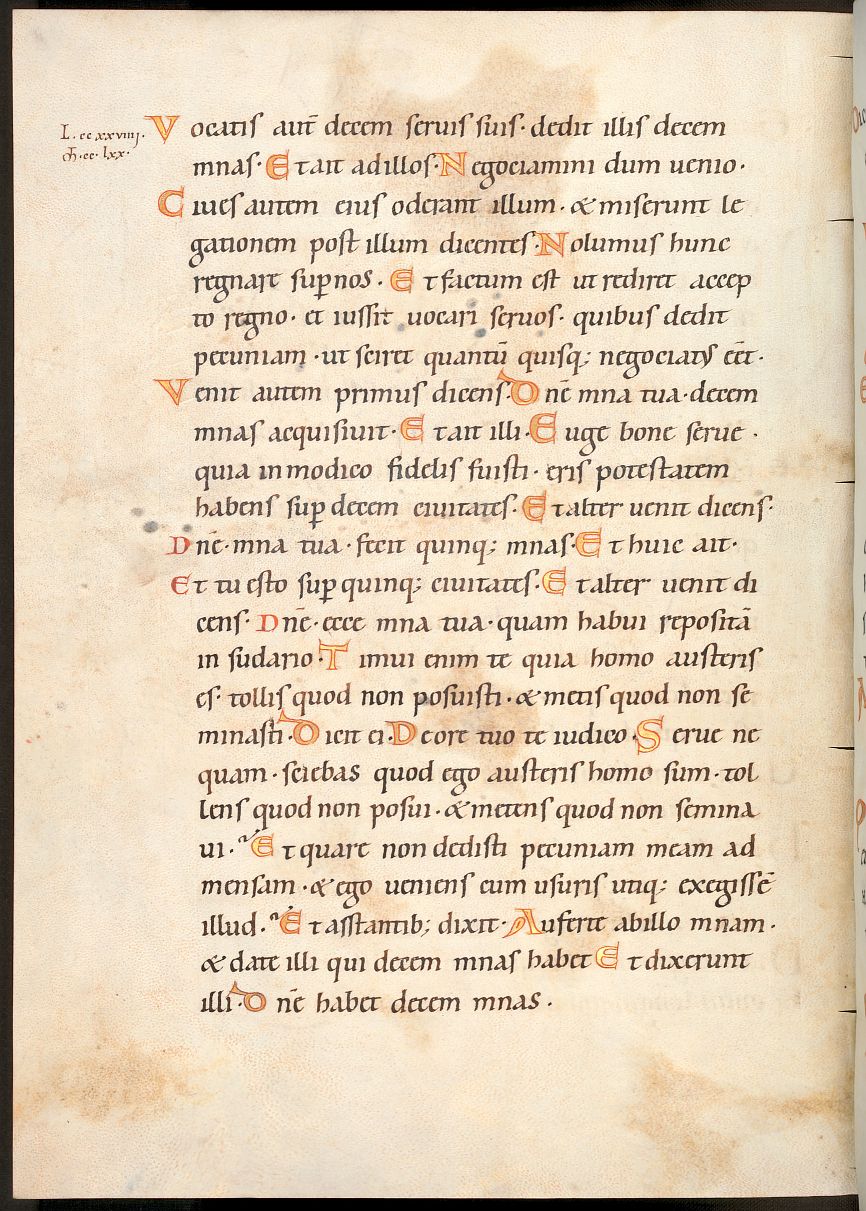 L. cc xxviiij.
M. cc. lxx.
Vocatis aut̄ decem seruis suis· dedit illis decem
mnas· Et ait ad illos· Negociamini dum uenio·
Ciues autem eius oderant illum· & miserunt le
gationem post illum dicentes· Nolumus hunc
regnare sup̱ nos· Et factum est ut rediret accep
to regno· et iussit uocari seruos· quibus dedit
pecuniam· ut sciret quantū quisq; negociat᷒ eēt·
Venit autem primus dicens· Dn̄e mna tua· decem
mnas acquisiuit· Et ait illi· Euge bone serue·
quia in modico fidelis fuisti· eris potestatem
habens sup̱ decem ciuitates· Et alter uenit dicens·
Dn̄e· mna tua· fecit quinq; mnas· Et huic ait·
Et tu esto sup̱ quinq; ciuitates· Et alter uenit di
cens· Dn̄e· ecce mna tua· quam habui repositā
in sudario· Timui enim te quia homo austeris
es· tollis quod non posuisti· & metis quod non se
minasti· Dicit ei· De ore tuo te iudico· Serue ne
quam· sciebas quod ego austeris homo sum· tol
lens quod non posui· & metens quod non semina
ui· Et quare non dedisti pecuniam meam ad
mensam· & ego ueniens cum usuris utiq; exegissē
illud· Et asstantib; dixit· Auferte ab illo mnam·
& date illi qui decem mnas habet Et dixerunt
illi· Dn̄e habet decem mnas·